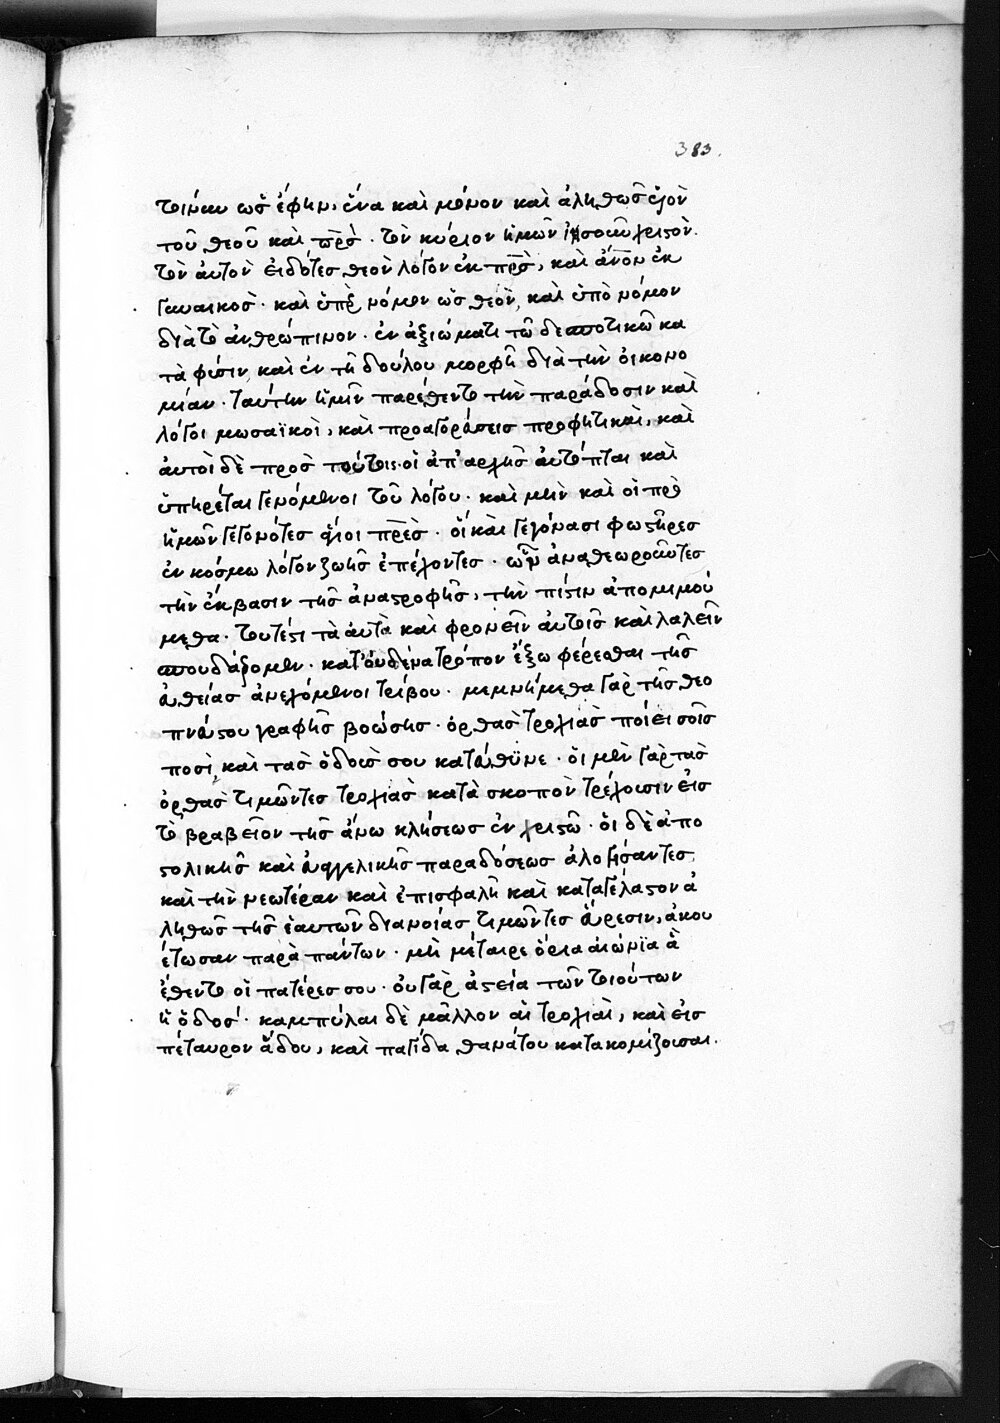 383.
τοίνυν ὡς ἔφην, ἕνα καὶ μόνον καὶ ἀληθῶς υἱὸν
τοῦ θεοῦ καὶ π̅ρ̅ς̅ · τὸν κύριον ἡμῶν ἰησοῦν χριστὸν.
τὸν αὐτὸν εἰδότες θεὸν λόγον ἐκ π̅ρ̅ς̅, καὶ ἄ̅ν̅ο̅ν̅ ἐκ
γυναικός · καὶ ὑπὲρ νόμον ὡς θεὸν, καὶ ὑπὸ νόμον
διὰ τὸ ἀνθρώπινον · ἐν ἀξιώματι τῶ δεσποτικῶ κα
τὰ φύσιν, καὶ ἐν τῆ δούλου μορφῆ διὰ τὴν οἰκονο
μίαν · ταύτην ἡμῖν παρέθεντο τὴν παράδοσιν καὶ
λόγοι μωσαϊκοὶ, καὶ προαγορεύσεις προφητικαὶ, καὶ
αὐτοὶ δὲ πρὸς τούτοις οἱ ἀπ' ἀρχῆς αὐτόπται καὶ
ὑπηρέται γενόμενοι τοῦ λόγου · καὶ μὴν καὶ οἱ πρὸ
ἡμῶν γεγονότες ἅγιοι π̅ρ̅ε̅ς̅ · οἳ καὶ γεγόνασι φωστῆρες
ἐν κόσμω λόγον ζωῆς ἐπέχοντες · ὧν ἀναθεωροῦντες
τὴν ἔκβασιν τῆς ἀναστροφῆς, τὴν πίστιν ἀπομιμού
μεθα · τουτέστι τὰ αὐτὰ καὶ φρονεῖν αὐτοῖς καὶ λαλεῖν
σπουδάζομεν · κατ' οὐδένα τρόπον ἔξω φέρεσθαι τῆς
εὐθείας ἀνεχόμενοι τρίβου · μεμνήμεθα γὰρ τῆς θεο
πνεύστου γραφῆς βοώσης · ὀρθὰς τροχιὰς ποίει σοῖς
ποσὶ, καὶ τὰς ὁδούς σου κατεύθϋνε · οἱ μὲν γὰρ τὰς
ὀρθὰς τιμῶντες τροχιὰς κατὰ σκοπὸν τρέχουσιν εἰς
τὸ βραβεῖον τῆς ἄνω κλήσεως ἐν χριστῶ · οἱ δὲ ἀπο
στολικῆς καὶ εὐαγγελικῆς παραδόσεως ἀλογήσαντες,
καὶ τὴν νεωτέραν καὶ ἐπισφαλῆ καὶ καταγέλαστον ἀ
ληθῶς τῆς ἑαυτῶν διανοίας τιμῶντες εὕρεσιν, ἀκου
έτωσαν παρὰ πάντων · μὴ μέταιρε ὅρια αἰώνϊα ἃ
ἔθεντο οἱ πατέρες σου · οὐ γὰρ ἀστεία τῶν τοιούτων
ἡ ὁδός · καμπύλαι δὲ μᾶλλον αἱ τροχιαὶ, καὶ εἰς
πέταυρον ἅδου, καὶ παγίδα θανάτου κατακομίζουσαι.